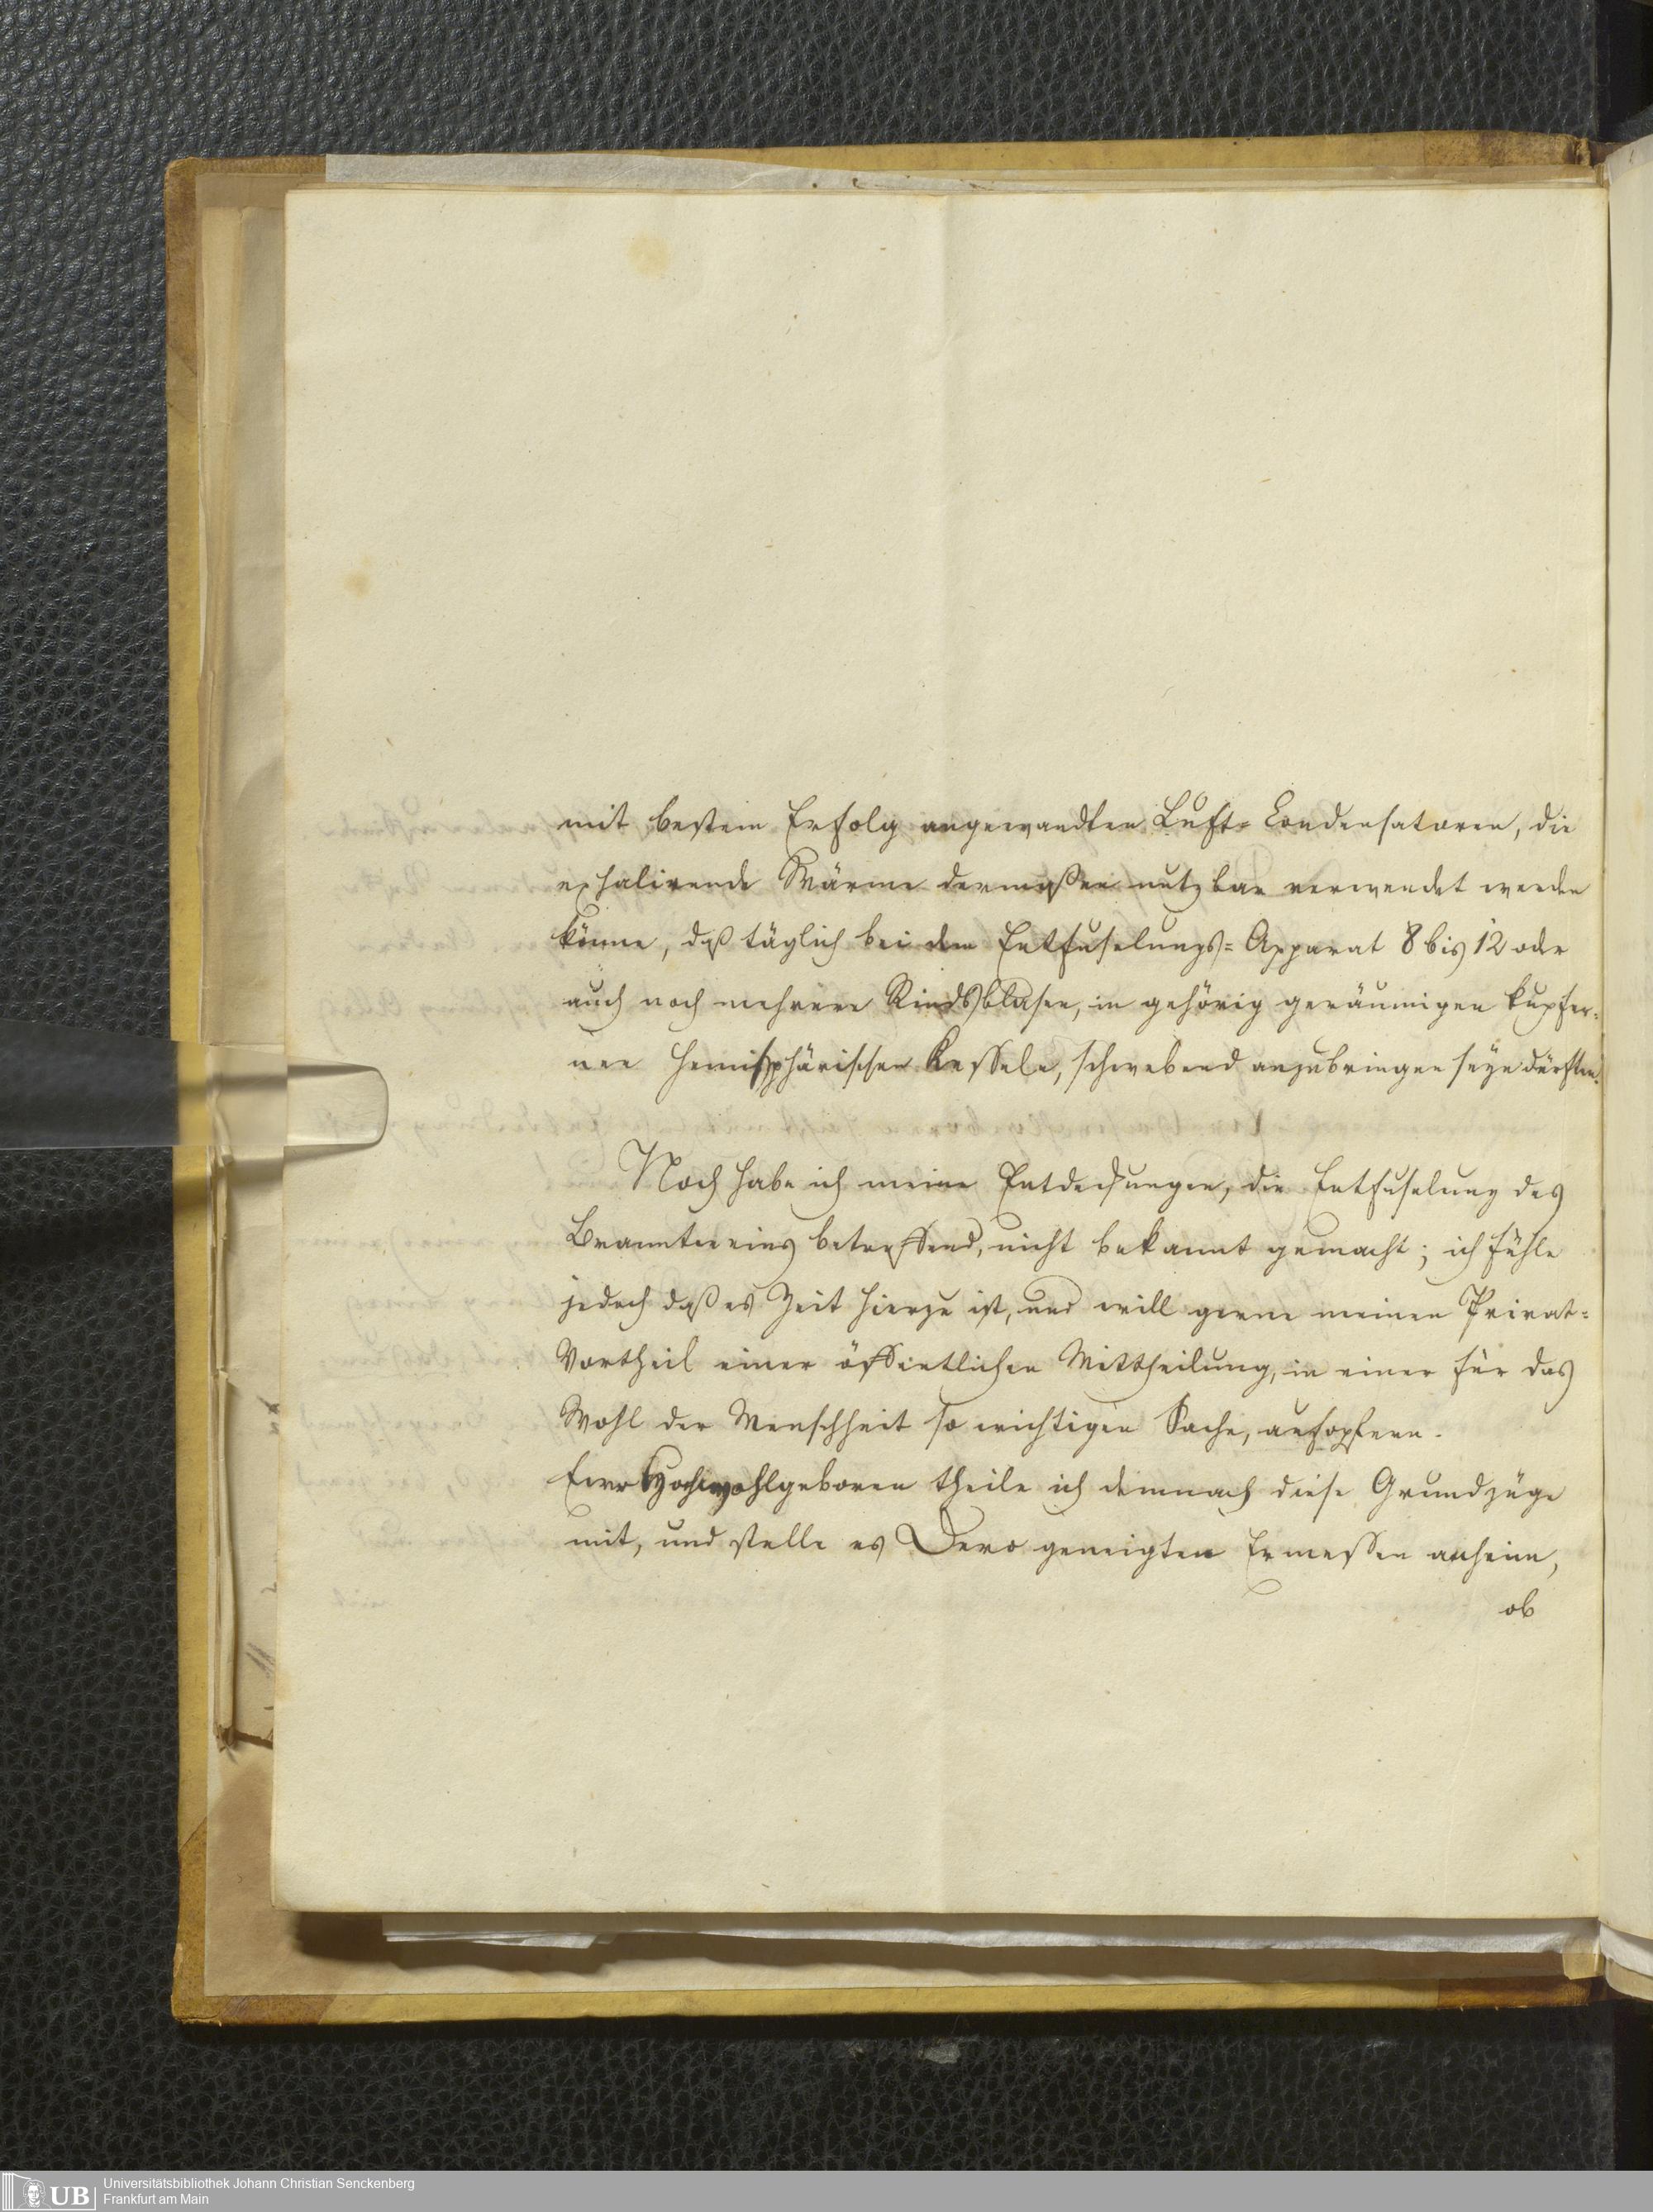 mit bestem Erfolg angewandten Luft-Condensatoren, die
exhalirende Wärme dermaßen nutzbar verwendet werden
könne, daß täglich bei dem Entfuselungs=Apparat 8 bis 12 oder
auch noch mehrere Rindsblasen, in gehörig geräumigen kupfer=
nen hemisphärischen Kesseln, schwebend anzubringen seyn dürften.
Noch habe ich meine Entdeckungen, die Entfuselung des
Branntweins betreffend, nicht bekannt gemacht; ich fühle
jedoch daß es Zeit hierzu ist, und will gerne meinen Privat=
Vortheil einer öffentlichen Mittheilung, in einer für das
Wohl der Menschheit so wichtigen Sache, aufopfern.
Euer Hochwohlgeboren theile ich demnach diese Grundzüge
mit, und stelle es Dero geneigten Ermessen anheim,
ob
UB
Universitätsbibliothek Johann Christian Senckenberg
Frankfurt am Main